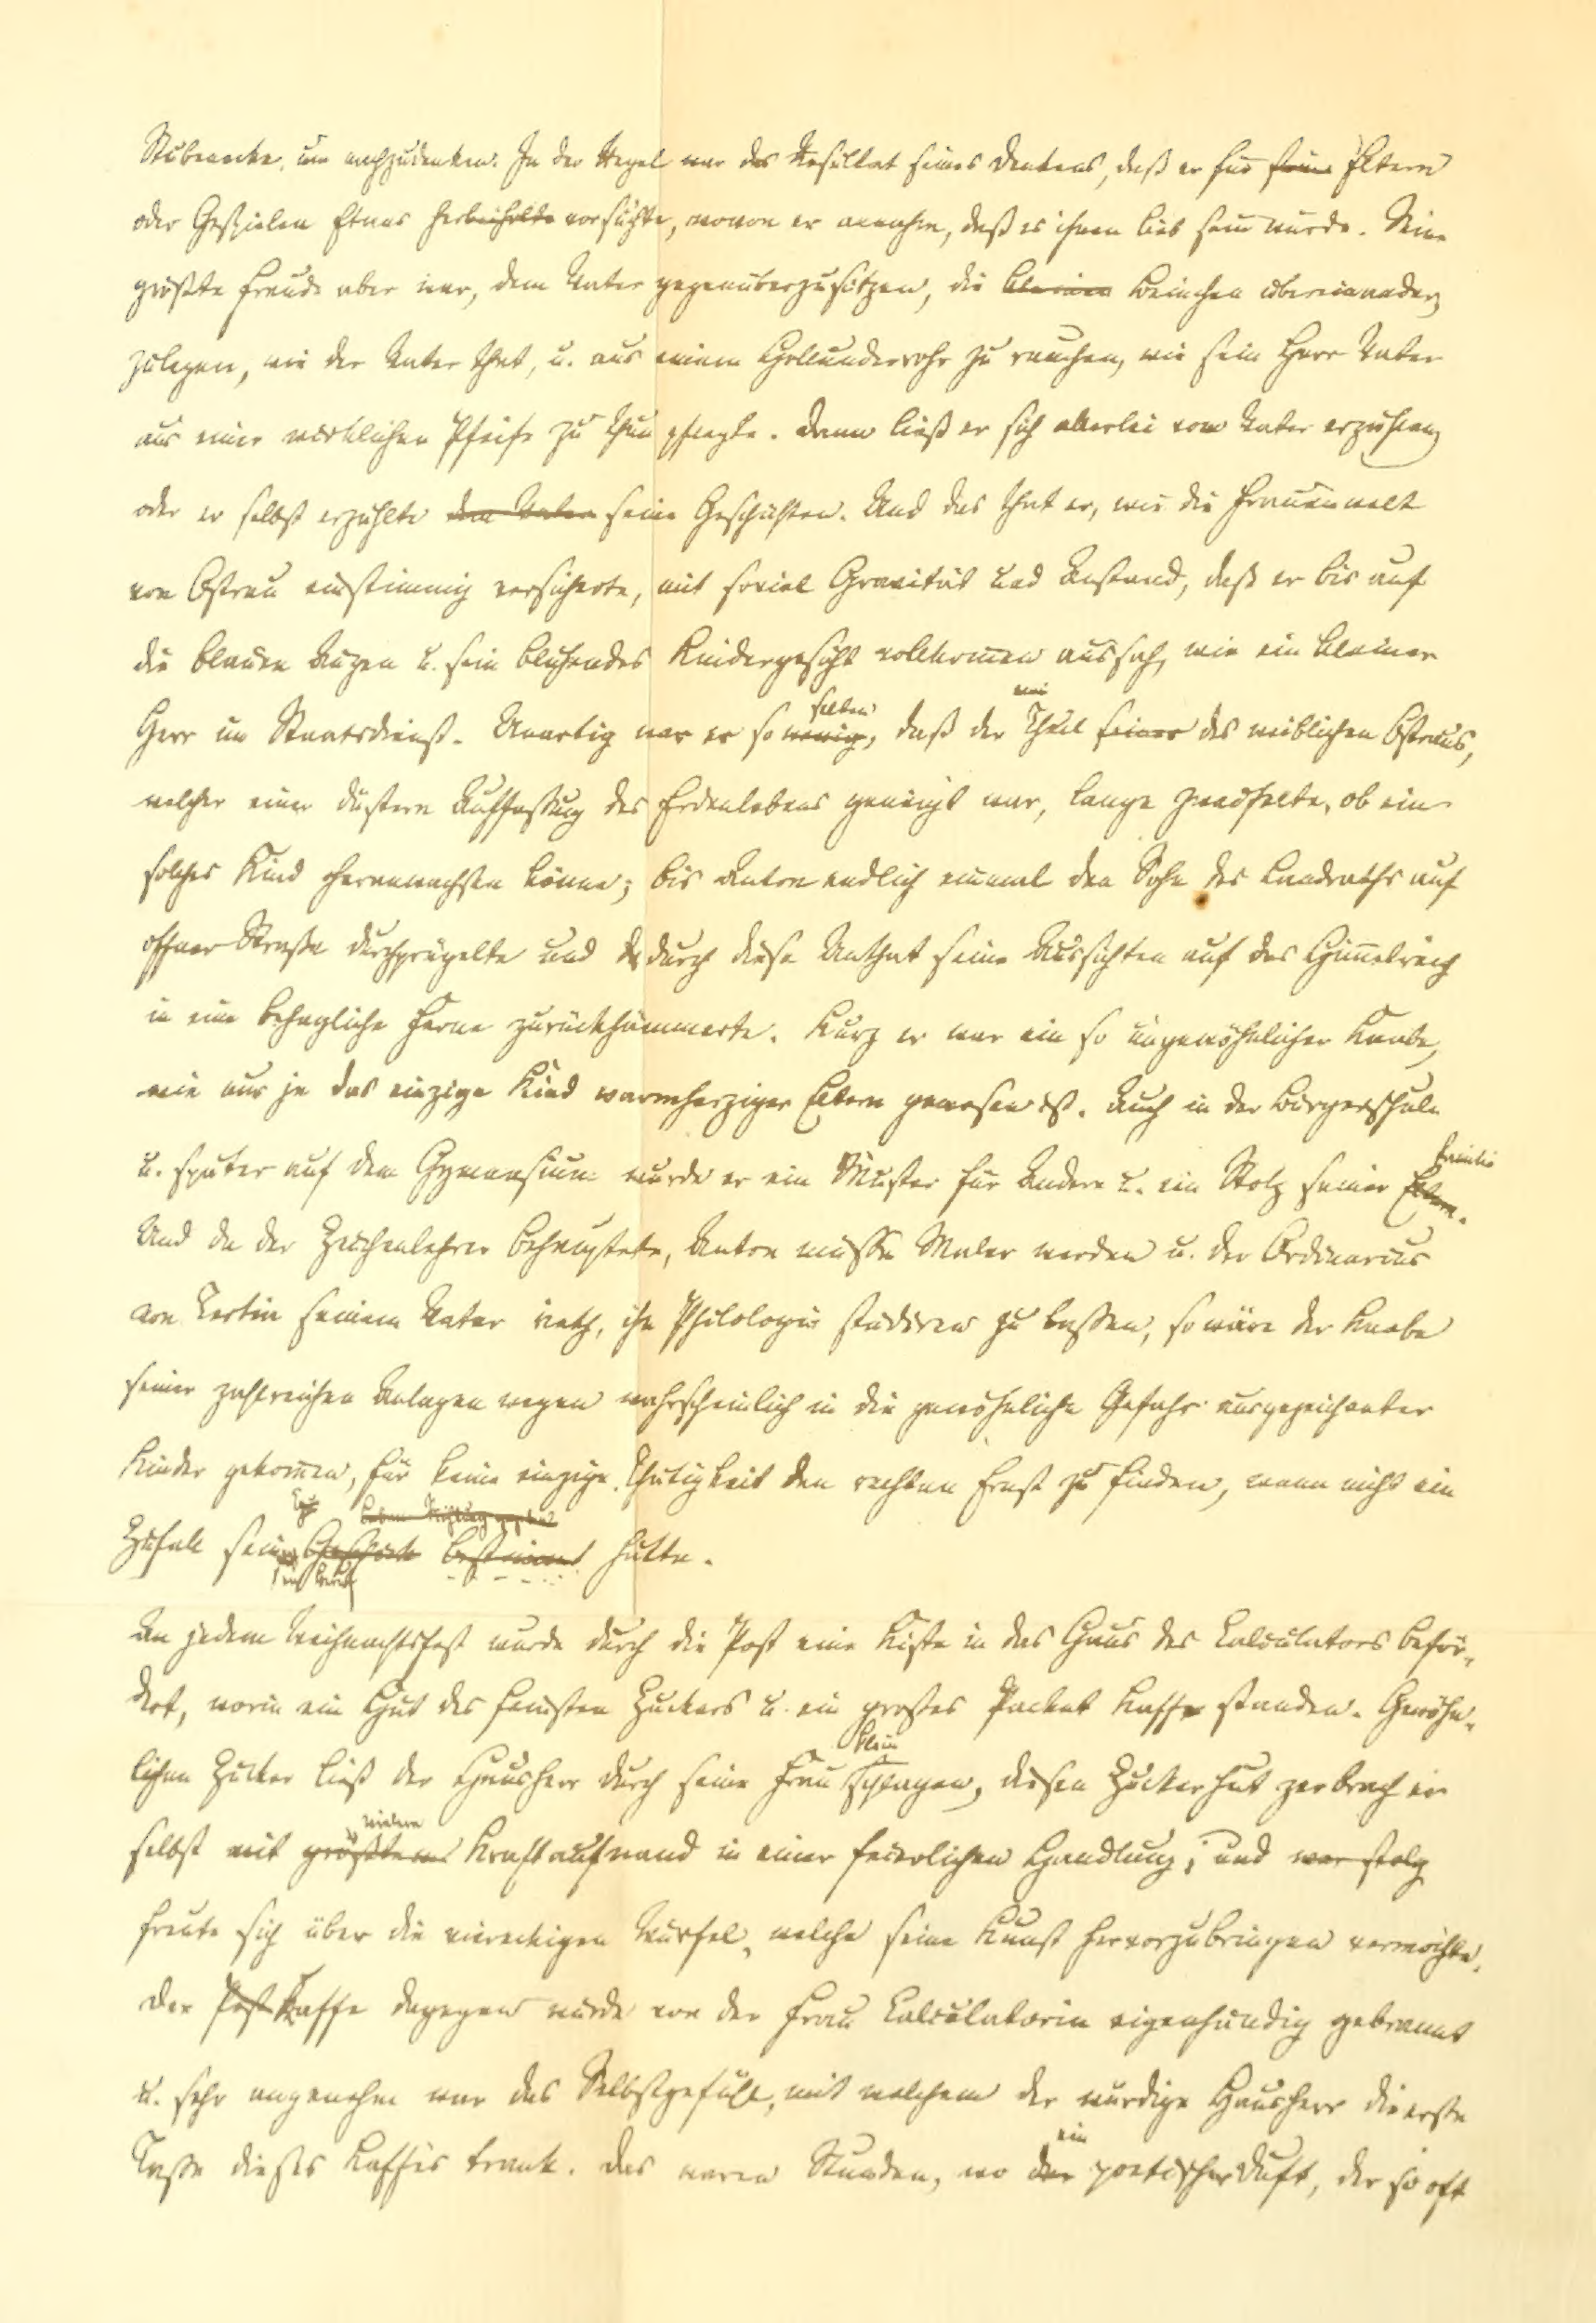 Stubenecke, um nachzudenken. In der Regel war das Resultat seines Denkens, daß er für seine Eltern
oder Gespielen Etwas herbeiholte vorsuchte, wovon er annahm, daß es ihnen lieb sein würde. Seine
größte Freude aber war, dem Vater gegenüberzusitzen, die kleinen Beinchen übereinander
zulegen, wie der Vater that, u. aus einem Hollunderrohr zu rauchen, wie sein Herr Vater
aus einer wirklichen Pfeife zu thun pflegte. Dann ließ er sich allerlei vom Vater erzählen,
oder er selbst erzählte dem Vater seine Geschichten. Und das that er, wie die Frauenwelt
von Ostrau einstimmig versicherte, mit soviel Gravität und Anstand, daß er bis auf
die blauen Augen u. sein blühendes Kindergesicht vollkommen aussah, wie ein kleiner
Herr im Staatsdienst. Unartig war er so wenig selten, daß der Theil seiner des weiblichen Ostraus,
welcher einer düstern Auffassung des Erdenlebens geneigt war, lange zweifelte, ob ein
solches Kind heranwachsen könne; bis Anton endlich einmal den Sohn des Landraths auf
offner Straße durchprügelte und durch diese Unthat seine Aussichten auf das Himmelreich
in eine behagliche Ferne zurückhämmerte. Kurz er war ein so ungewöhnlicher Knabe,
wie nur je das einzige Kind warmherziger Eltern gewesen ist. Auch in der Bürgerschule
u. später auf dem Gymnasium wurde er ein Muster für Andere u. ein Stolz seiner Eltern. Familie
Und da der Zeichenlehrer behauptete, Anton müsse Maler werden u. der Ordinarius
von Tertia seinem Vater rieth, ihn Philologie studiren zu lassen, so wäre der Knabe
seiner zahlreichen Anlagen wegen wahrscheinlich in die gewöhnliche Gefahr ausgezeichneter
Kinder gekommen, für keine einzige Thätigkeit den rechten Ernst zu finden, wenn nicht ein
Zufall seinen Beruf bestimmt hätte.
An jedem Weihnachtsfest wurde durch die Post eine Kiste in das Haus des Calculators beför-
dert, worin ein Hut des feinsten Zuckers u. ein großes Packet Kaffe standen. Gewöhn-
lichen Zucker ließ der Hausherr durch seine Frau klein schlagen, diesen Zuckerhut zerbrach er
selbst mit größtem vielem Kraftaufwand in einer feierlichen Handlung; und war stolz
freute sich über die viereckigen Würfel, welche seine Kunst hervorzubringen vermochte.
Der Post Kaffe dagegen wurde von der Frau Calculatorin eigenhändig gebrannt
u. sehr angenehm war das Selbstgefühl, mit welchem der würdige Hausherr die erste
Tasse dieses Kaffes trank. Das waren Stunden, wo der ein poetischer Duft, der so oft